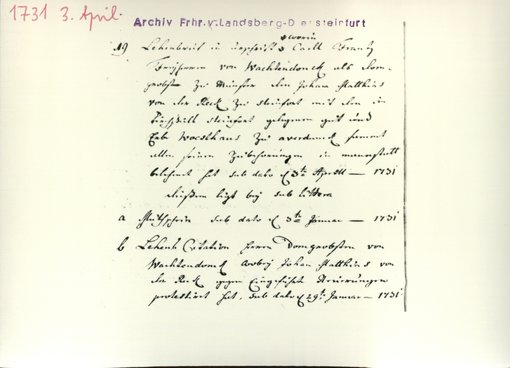 1731 3. April.
Archiv Frhr. v. Landsberg-D ersteinfurt
worin
19 Lehenbrieff in Carll Frantz
Freyherrn von Wachtendonck als dom-
probsten zu Münster den Johan Matthias
von der Reck zu Steinfort mit den in
Kirspill Steinfort gelegenen gut und
Erbe Woesthaus zu averdunck sammt
allen seinen Zubehörungen in mannstatt
belehnet hat sub dato d 3te Aprill — 1731
ligt bey sub littera
a Muthschein sub dato d 3te Januar — 1731
b Lehens Citation Herrn Domprobsten von
Wachtendonck wobey Johan Matthias von
der Reck gegen Neuerungen
protestirt hat, sub dato d 29te Januar — 1731